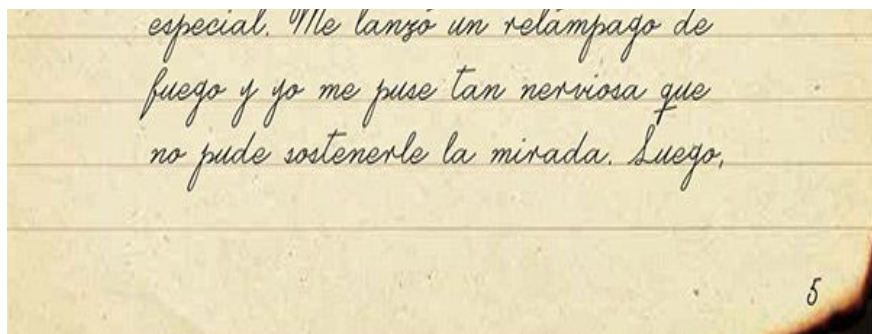 especial. Me lanzó un relámpago de
fuego y yo me puse tan nerviosa que
no pude sostenerle la mirada. Luego,
5